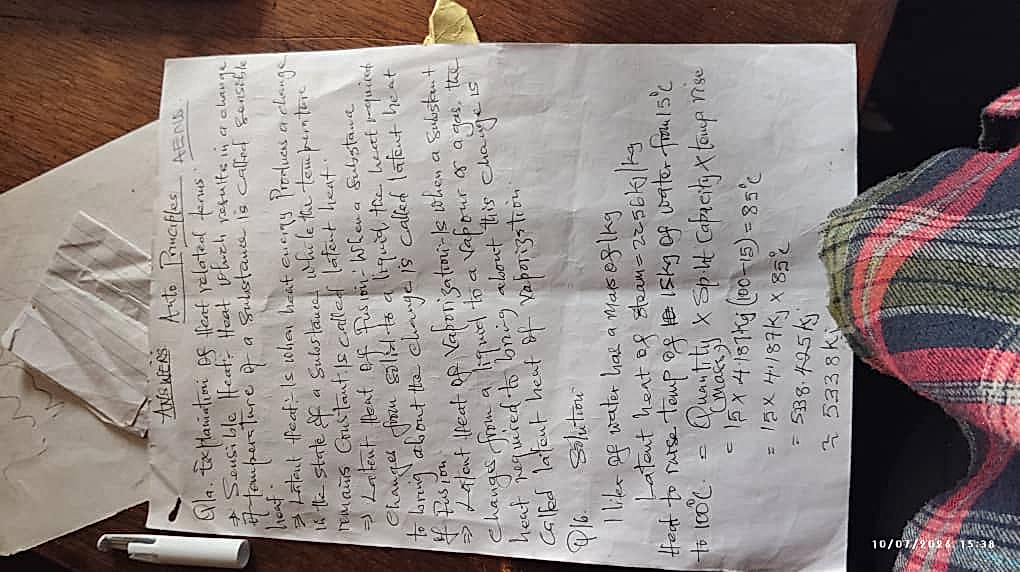 ANSWERS Auto Principles AENS.
Q1a. Explanation of Heat related terms.
→ Sensible Heat:- Heat which results in a change
of temperature of a Substance is called sensible
heat.
⇒ Latent Heat:- is when heat energy Produces a change
in the state of a substance, while the temperature
remains Constant is called latent heat.
⇒ Latent Heat of fusion:- When a substance
Changes from solid to a liquid the heat required
to bring about the change is called latent heat
of fusion.
⇒ Latent Heat of Vaporization:- is when a substant
changes from a liquid to a vapour or a gas, the
heat required to bring about this change is
called latent heat of vaporization
Q1b. Solution.
1 liter of water has a mass of 1kg
Latent heat of steam = 2256KJ/kg
Heat to raise temp of 15kg of water from 15°C
to 100°C. = Quantity X Sp. H Capacity X temp rise
(mass)
= 15 X 4.187Kj (100-15) = 85°C
= 15 X 4.187Kj X 85°C
= 538.425Kj
≈ 5338Kj
10/07/2024 15:38